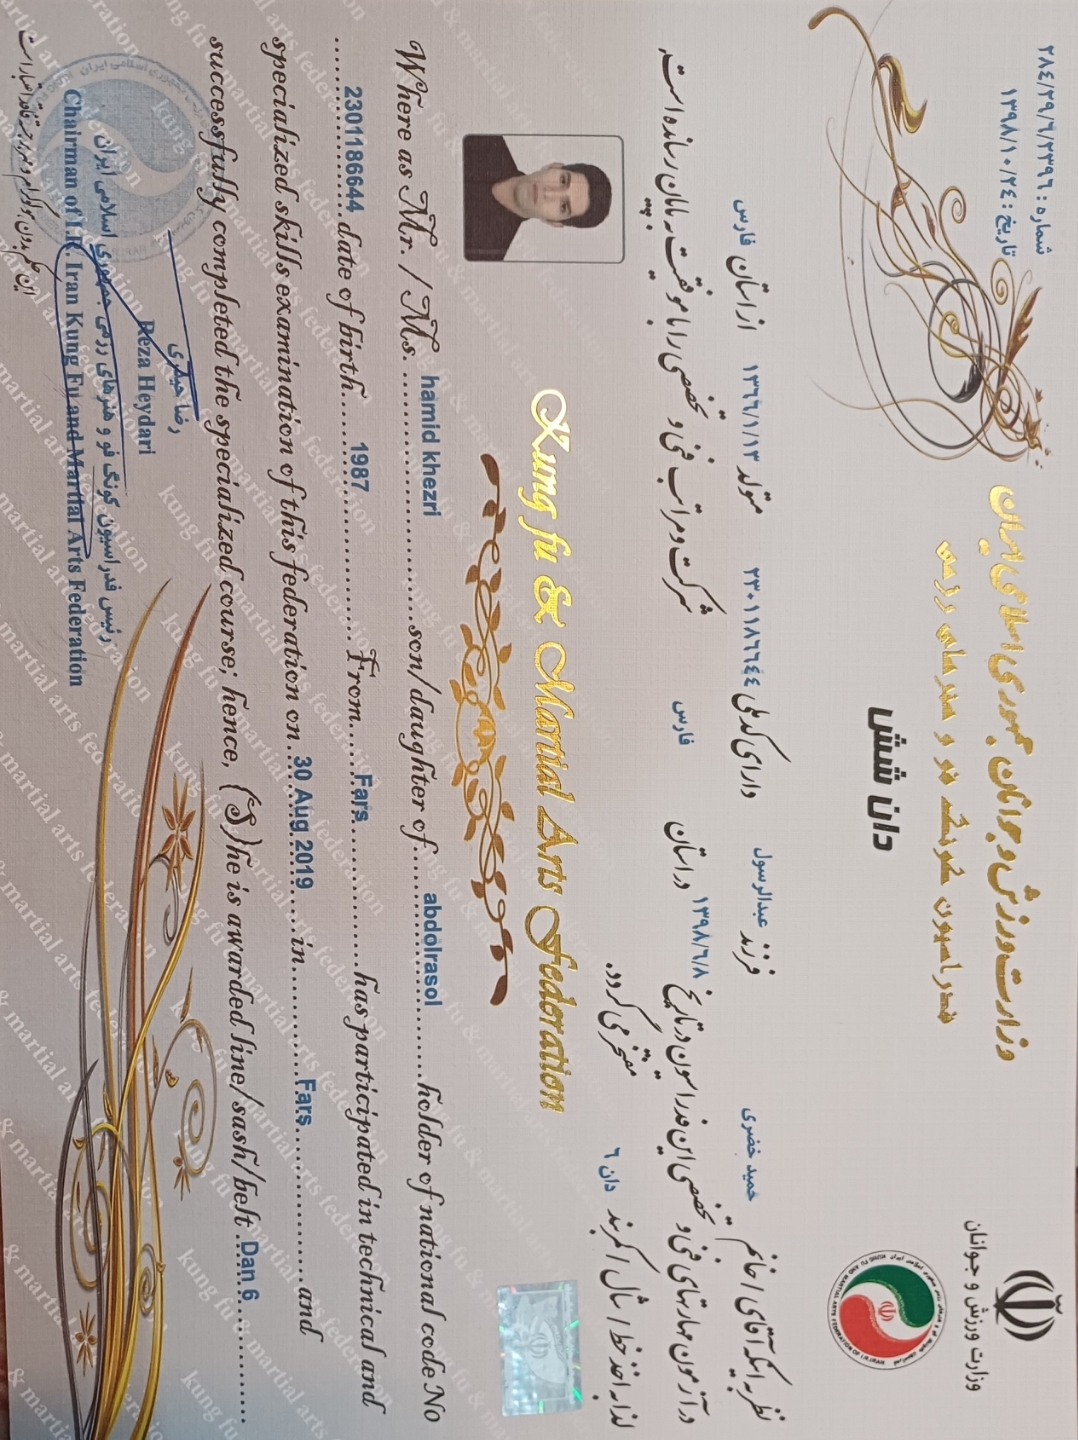 وزارت ورزش و جوانان جمهوری اسلامی ایران
شماره : ۲۸٤/۲۹/٦/۲۳۹٦
تاریخ : ۱۳۹۸/۱۰/۲٤
فدراسیون کونگ فو و هنرهای رزمی
وزارت ورزش و جوانان
دان شش
نظر به اینکه آقای / خانم حمید خضری فرزند عبدالرسول دارای کد ملی ۲۳۰۱۱۸٦٦٤٤ متولد ۱۳٦٦/۱/۱۳ از استان فارس
در آزمون مهارتهای فنی و تخصصی این فدراسیون در تاریخ ۱۳۹۸/٦/۸ در استان فارس شرکت و مراتب فنی و تخصصی را با موفقیت به پایان رسانده است.
لذا به اخذ خط / شال / کمربند دان ٦ مفتخر می گردد.
Kung fu & Martial Arts Federation
Where as Mr. / Ms. hamid khezri son/daughter of abdolrasol holder of national code No
2301186644 date of birth 1987 From Fars has participated in technical and
specialized skills examination of this federation on 30 Aug 2019 in Fars and
successfully completed the specialized course; hence, (S)he is awarded line/sash/belt Dan 6
رضا حیدری
Reza Heydari
رئیس فدراسیون کونگ فو و هنرهای رزمی جمهوری اسلامی ایران
Chairman of I.R. Iran Kung Fu and Martial Arts Federation